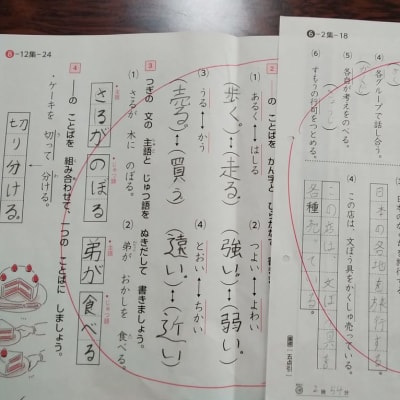 ⑥-2集-18
④ 各グループで話し合う。
⑤ 各自が考えをのべる。
⑥ すもうの行司をつとめる。
日本の各地を旅行する。
④ この店は、文ぼう具をかくしゅ売っている。
この店は、文ぼう具を
各種売っている。
⑧-12集-24
2
のことばを かん字と ひらがなで 書き
① あるく⟷はしる
(歩く。)…(走る。)
② つよい⟷よわい
(強い。)…(弱い。)
③ うる⟷かう
(売る。)…(買う)
④ とおい⟷ちかい
(遠い)…(近い)
3
つぎの 文の 主語と じゅつ語を ぬきだして 書きましょう。
① さるが 木に のぼる。
主語
さるが
じゅつ語
のぼる
② 弟が おかしを 食べる。
弟が
食べる
4
――の ことばを 組み合わせて、一つの ことばに しましょう。
・ケーキを 切って 分ける。
切り分ける。